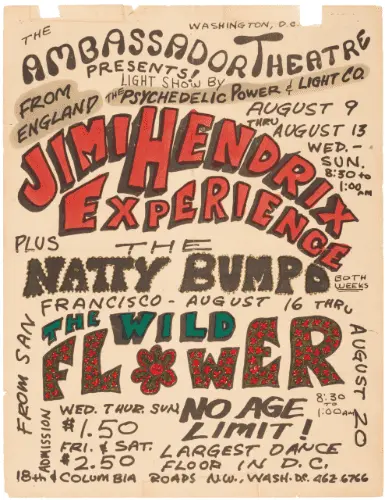 WASHINGTON, D.C.
THE
AMBASSADOR THEATRE
PRESENTS!
LIGHT SHOW BY
THE PSYCHEDELIC POWER & LIGHT CO.
FROM
ENGLAND
AUGUST 9
THRU
AUGUST 13
WED. -
SUN.
8:30 to
1:00 AM
JIMI HENDRIX
EXPERIENCE
PLUS
THE
NATTY BUMPO
BOTH
WEEKS
FROM SAN
FRANCISCO - AUGUST 16 THRU
AUGUST 20
THE WILD
FLOWER
8:30
TO
1:00 AM
ADMISSION
WED. THUR. SUN.
$1.50
FRI. & SAT.
$2.50
NO AGE
LIMIT!
LARGEST DANCE
FLOOR IN D.C.
18th & COLUMBIA ROADS N.W., WASH. D.C. 462-6766